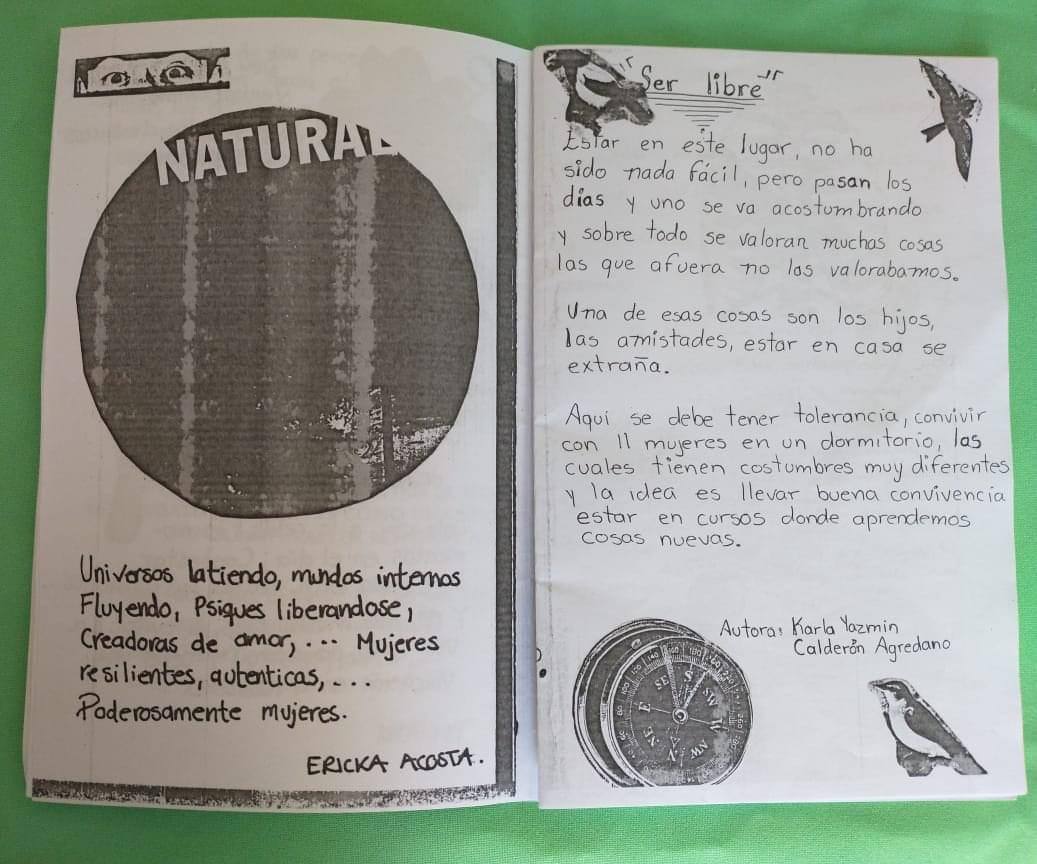 NATURAL
Universos latiendo, mundos internos
Fluyendo, Psiques liberandose,
Creadoras de amor, ... Mujeres
resilientes, autenticas, ...
Poderosamente mujeres.
ERICKA ACOSTA.
"Ser libre"
Estar en este lugar, no ha
sido nada fácil, pero pasan los
días y uno se va acostumbrando
y sobre todo se valoran muchas cosas
las que afuera no las valorabamos.
Una de esas cosas son los hijos,
las amistades, estar en casa se
extraña.
Aquí se debe tener tolerancia, convivir
con 11 mujeres en un dormitorio, las
cuales tienen costumbres muy diferentes
y la idea es llevar buena convivencia
estar en cursos donde aprendemos
cosas nuevas.
Autora: Karla Yazmin
Calderón Agredano
SE S SW
E W
NE N NW